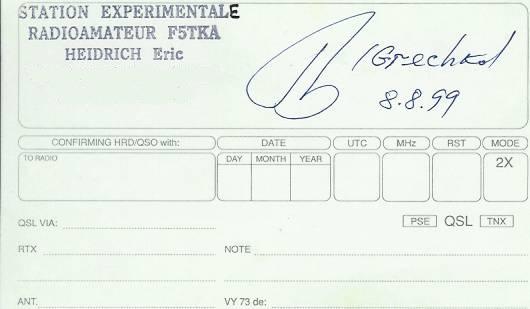 STATION EXPERIMENTALE
RADIOAMATEUR F5TKA
HEIDRICH Eric
/Grechko/
8.8.99
CONFIRMING HRD/QSO with:
DATE
UTC
MHz
RST
MODE
TO RADIO
DAY MONTH YEAR
2X
QSL VIA:
PSE QSL TNX
RTX
NOTE
ANT.
VY 73 de: